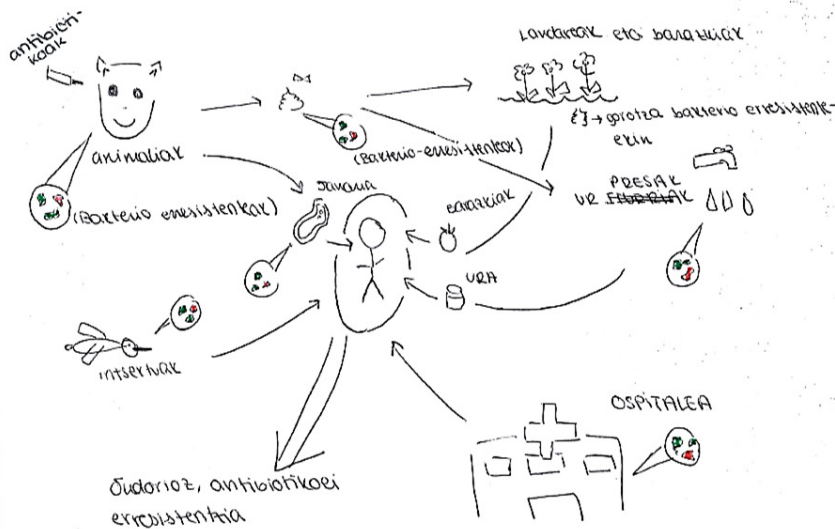 antibioti-
koak
animaliak
(Bakterio erresistenteak)
(Bakterio-erresistenteak)
Landareak eta barazkiak
→ gorotza bakterio erresistente-
ekin
PRESAK
UR
Janaria
barazkiak
URA
intsektuak
OSPITALEA
Ondorioz, antibiotikoei
erresistentzia